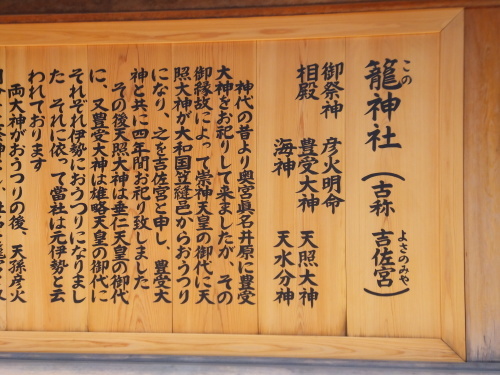 籠神社(古称 吉佐宮)
この よさのみや
御祭神 彦火明命
相殿 豊受大神 天照大神
海神 天水分神
神代の昔より奥宮眞名井原に豊受
大神をお祀りして来ましたが、その
御縁故によって崇神天皇の御代に天
照大神が大和国笠縫邑からおうつり
になり、之を吉佐宮と申し、豊受大
神と共に四年間お祀り致しました
その後天照大神は垂仁天皇の御代
に、又豊受大神は雄略天皇の御代に
それぞれ伊勢におうつりになりまし
た それに依って當社は元伊勢と云
われております
両大神がおうつりの後、天孫彦火